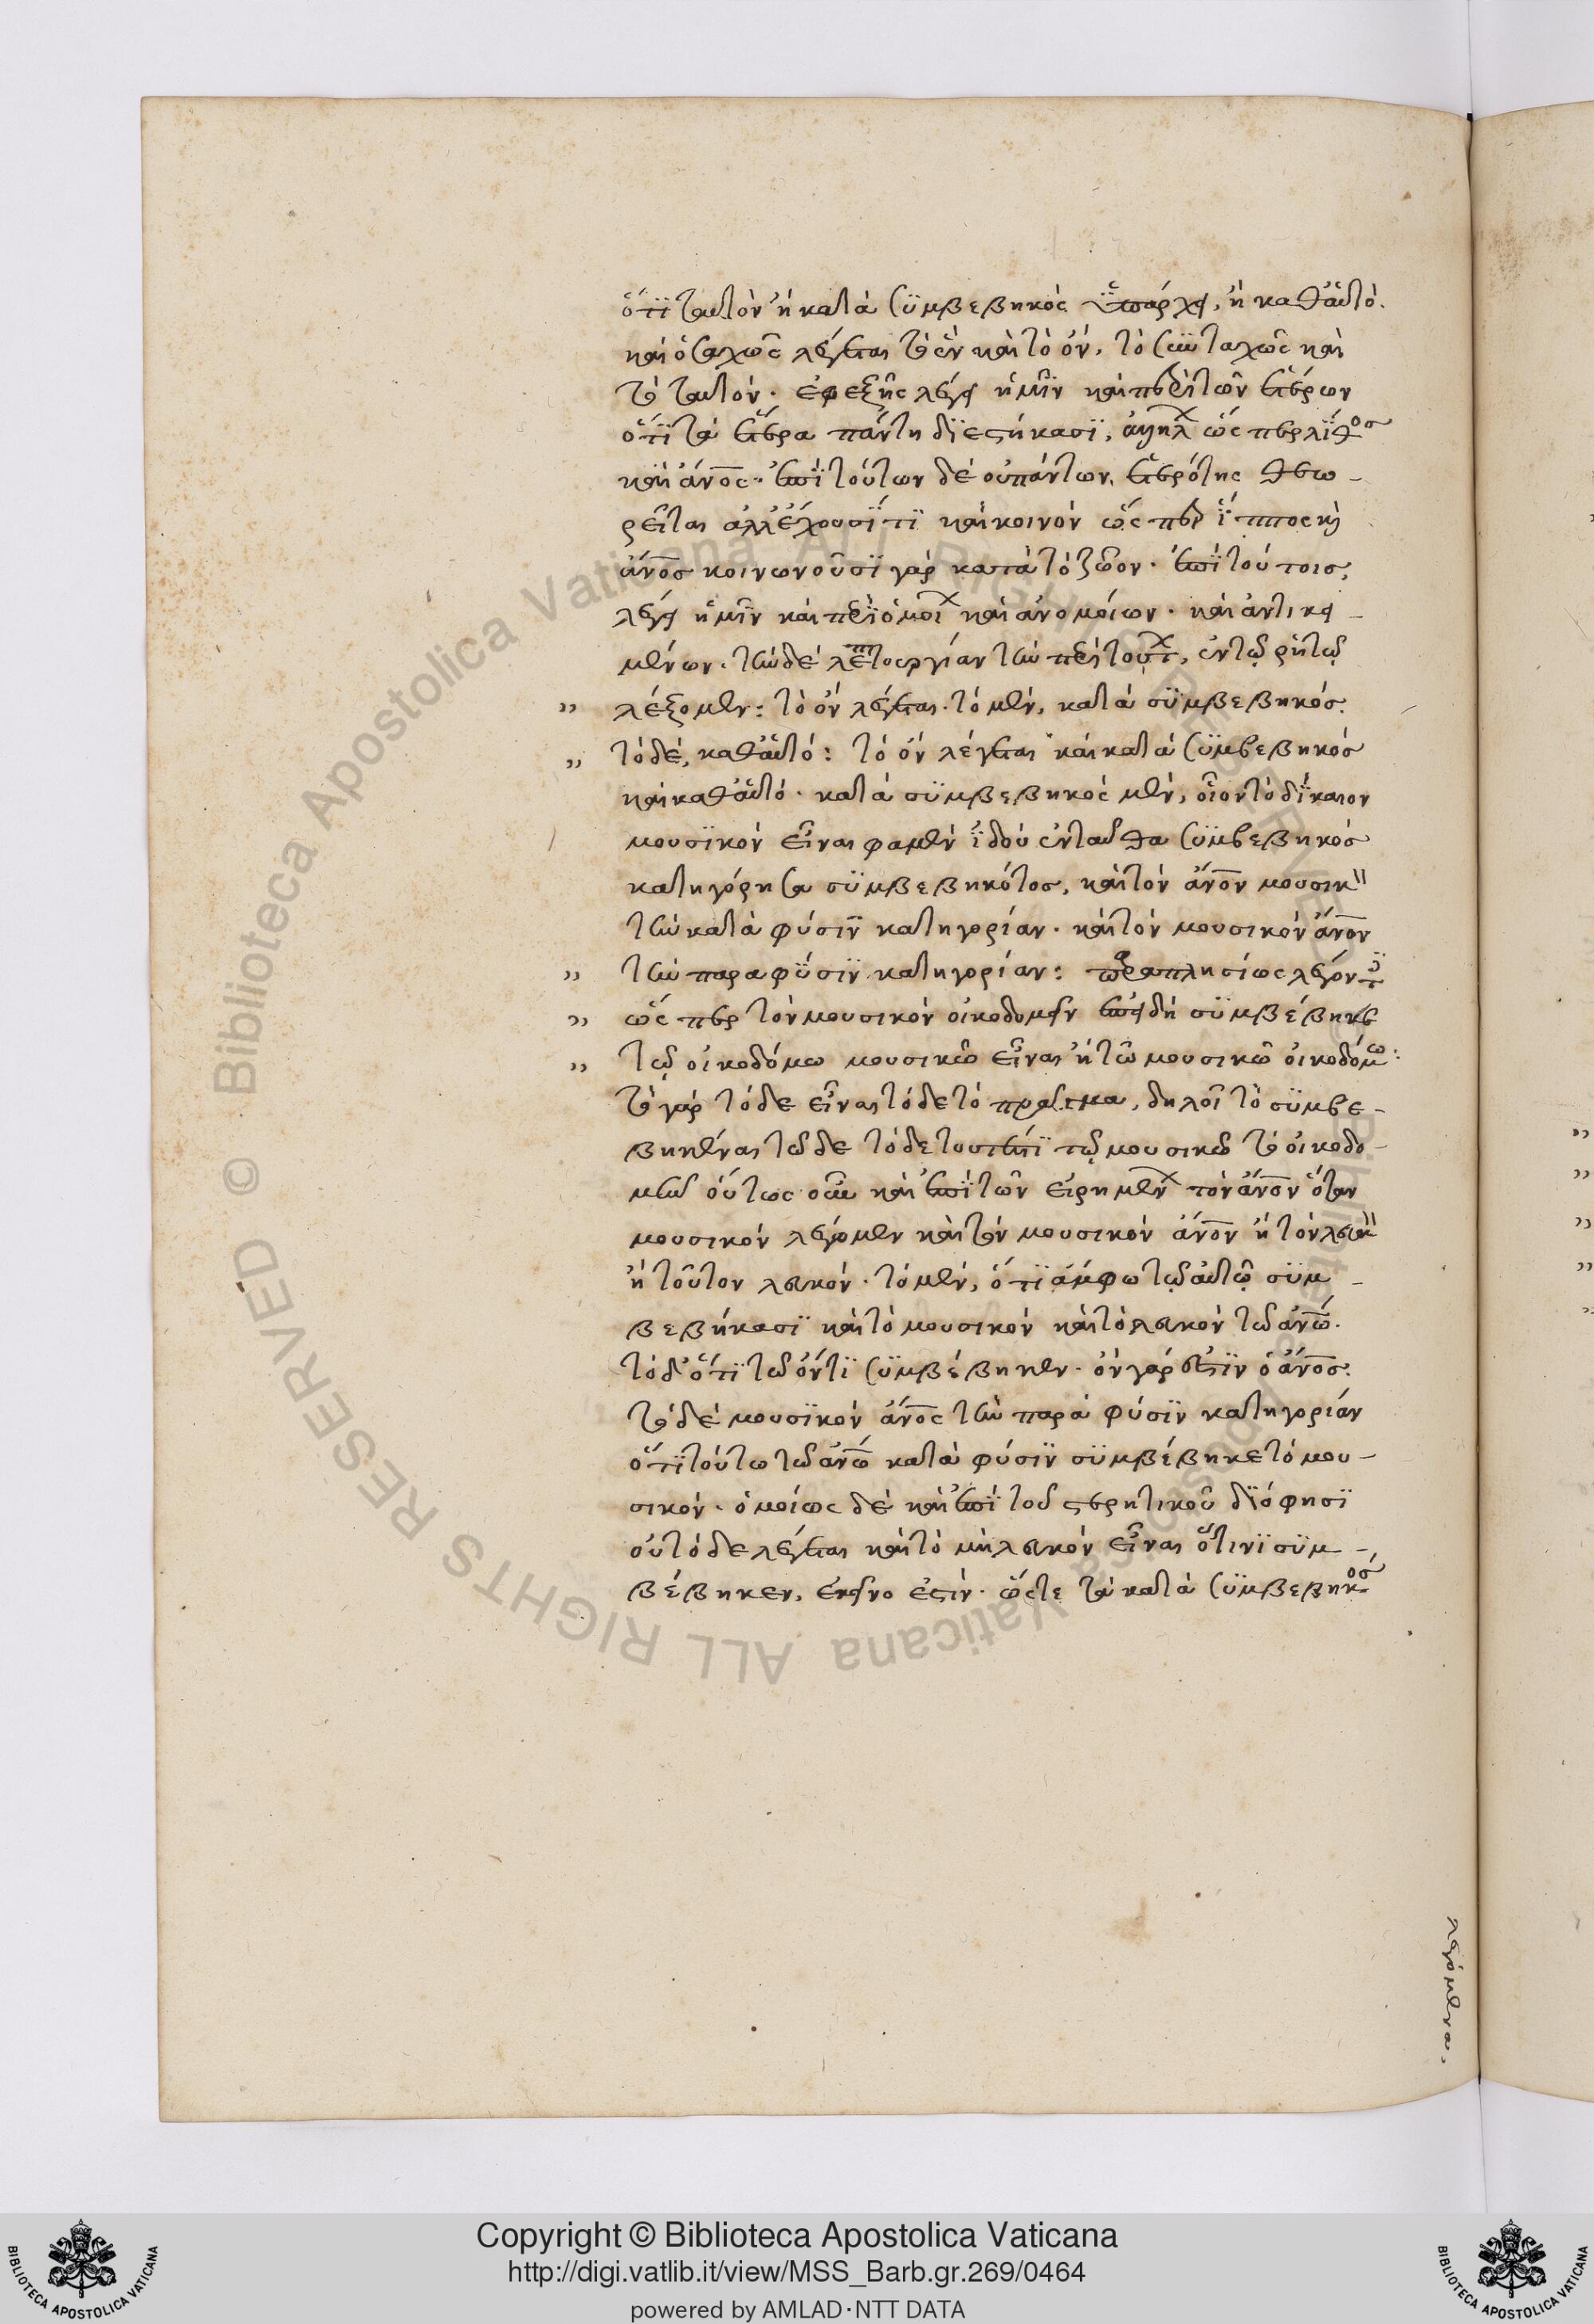 ὅτι ταυτὸν ἢ κατὰ συμβεβηκὸς ὑπάρχει, ἢ καθ' αὑτό.
καὶ ὁσαχῶς λέγεται τὸ ἓν καὶ τὸ ὄν, τοσαυταχῶς καὶ
τὸ ταυτόν. ἐφεξῆς λέγει ἡμῖν καὶ περὶ τῶν ἑτέρων
ὅτι τὰ ἕτερα πάντη διεστήκασι, ὥσπερ λίθος
καὶ ἄνος. ἐπὶ τούτων δὲ οὐ πάντων, ἑτερότης θεω-
ρεῖται ἀλλ' ἔχουσί τι καὶ κοινὸν ὥσπερ ἵππος κὶ
ἄνος κοινωνοῦσι γὰρ κατὰ τὸ ζῶον. ἐπὶ τούτοις,
λέγει ἡμῖν καὶ περὶ ὁμοί καὶ ἀνομοίων. καὶ ἀντικει-
μένων. τὴν δὲ λεπτουργίαν τὴν περὶ τούτ, ἐν τῷ ῥητῷ
" λέξομεν: τὸ ὂν λέγεται. τὸ μὲν, κατὰ συμβεβηκός.
" τὸ δὲ, καθ' αὑτό: τὸ ὂν λέγεται καὶ κατὰ συμβεβηκός
καὶ καθ' αὑτό. κατὰ συμβεβηκὸς μὲν, οἷον τὸ δίκαιον
μουσικὸν εἶναι φαμὲν ἰδοὺ ἐνταῦθα συμβεβηκός
κατηγόρησα συμβεβηκότος, καὶ τὸν ἄνον μουσικ
τὴν κατὰ φύσιν κατηγορίαν. καὶ τὸν μουσικὸν ἄνον
" τὴν παρα φύσιν κατηγορίαν: παραπλησίως λέγοντ
" ὥσπερ τὸν μουσικὸν οἰκοδομεῖν ἐπειδὴ συμβέβηκε
" τῷ οἰκοδόμω μουσικῶ εἶναι ἢ τῶ μουσικῶ οἰκοδόμω:
τὸ γὰρ τόδε εἶναι τόδε τὸ πρᾶγμα, δηλοῖ τὸ συμβε-
βηκέναι τῶδε τόδε τουτέστι τῷ μουσικῶ τὸ οἰκοδο-
μεῖν οὕτως οὖν καὶ ἐπὶ τῶν εἰρημέν τὸν ἄνον ὅταν
μουσικὸν λέγομεν καὶ τὸν μουσικὸν ἄνον ἢ τὸν λευκ
ἢ τοῦτον λευκόν. τὸ μὲν, ὅτι ἄμφω τῷ αὐτῷ συμ-
βεβήκασι καὶ τὸ μουσικὸν καὶ τὸ λευκὸν τῶ ἀνω.
τὸ δ' ὅτι τῶ ὄντι συμβέβηκεν. ὂν γάρ ἐστιν ὁ ἄνος.
τὸ δὲ μουσικὸν ἄνος τὴν παρὰ φύσιν κατηγορίαν
ὅτι τούτω τῶ ἀνω κατὰ φύσιν συμβέβηκε τὸ μου-
σικόν. ὁμοίως δὲ καὶ ἐπὶ τοῦ στερητικοῦ διό φησι
οὕτο δὲ λέγεται καὶ τὸ μὴ λευκὸν εἶναι ὅτινι συμ-
βέβηκεν, ἐκεῖνο ἐστίν. ὥστε τὰ κατὰ συμβεβηκός
λεγόμενα.
Copyright © Biblioteca Apostolica Vaticana
http://digi.vatlib.it/view/MSS_Barb.gr.269/0464
powered by AMLAD·NTT DATA
BIBLIOTECA APOSTOLICA VATICANA
BIBLIOTECA APOSTOLICA VATICANA
© Biblioteca Apostolica Vaticana ALL RIGHTS RESERVED